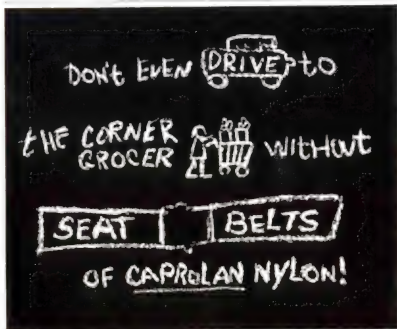 DON'T EVEN DRIVE to
tHE CORNER
GROCER WITHOUT
SEAT BELTS
OF CAPROLAN NYLON!